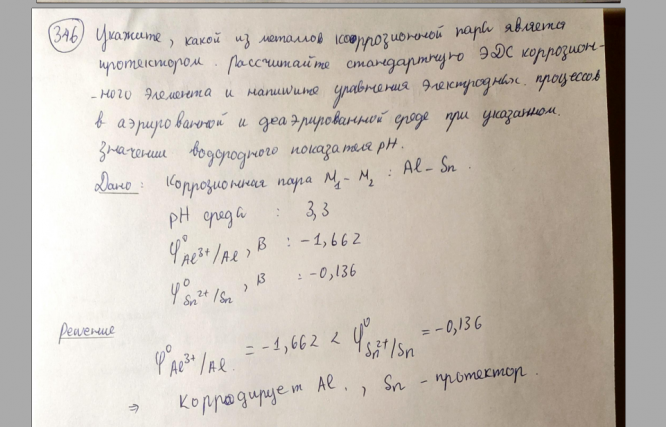 346 Укажите, какой из металлов коррозионной пары является
протектором. Рассчитайте стандартную ЭДС коррозион-
-ного элемента и напишите уравнения электродных процессов
в аэрированной и деаэрированной среде при указанном
значении водородного показателя pH.
Дано: Коррозионная пара M₁ - M₂ : Al - Sn.
pH среда : 3,3
φ⁰ Al³⁺/Al, В : -1,662
φ⁰ Sn²⁺/Sn, В : -0,136
Решение
φ⁰ Al³⁺/Al = -1,662 < φ⁰ Sn²⁺/Sn = -0,136
⇒ Корродирует Al., Sn - протектор.